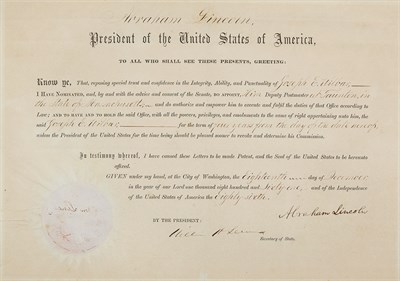 Abraham Lincoln,
President of the United States of America,
TO ALL WHO SHALL SEE THESE PRESENTS, GREETING:
Know ye, That, reposing special trust and confidence in the Integrity, Ability, and Punctuality of Joseph E.
I HAVE NOMINATED, and, by and with the advice and consent of the Senate, DO APPOINT, Him Deputy Postmaster at Taunton, in
the State of Massachusetts and do authorize and empower him to execute and fulfil the duties of that Office according to
Law; AND TO HAVE AND TO HOLD the said Office, with all the powers, privileges, and emoluments to the same of right appertaining unto him, the
said Joseph E. for the term of four years from the day of the date hereof,
unless the President of the United States for the time being should be pleased sooner to revoke and determine his Commission.
In testimony whereof, I have caused these Letters to be made Patent, and the Seal of the United States to be hereunto
affixed.
GIVEN under my hand, at the City of Washington, the Eighteenth day of
in the year of our Lord one thousand eight hundred and Sixty one, and of the Independence
of the United States of America the Eighty Sixth.
Abraham Lincoln
BY THE PRESIDENT:
Secretary of State.